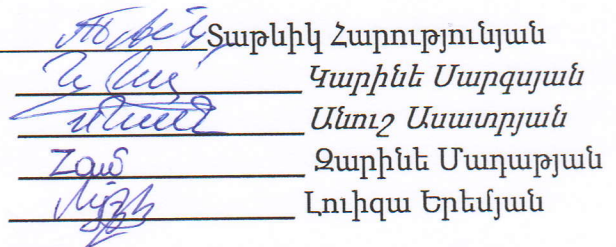 Տաթևիկ Հարությունյան
Կարինե Սարգսյան
Անուշ Ասատրյան
Զարինե Մադաթյան
Լուիզա Երեմյան